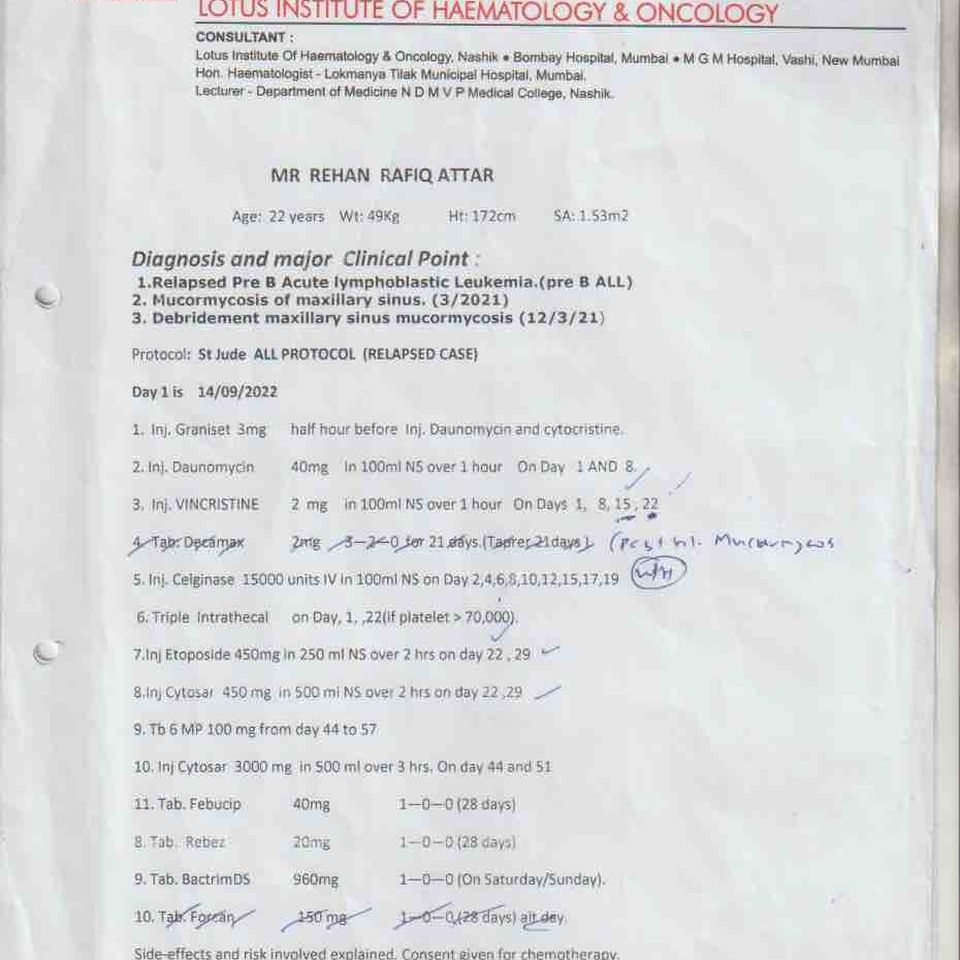 LOTUS INSTITUTE OF HAEMATOLOGY & ONCOLOGY
CONSULTANT :
Lotus Institute Of Haematology & Oncology, Nashik • Bombay Hospital, Mumbai • M G M Hospital, Vashi, New Mumbai
Hon. Haematologist - Lokmanya Tilak Municipal Hospital, Mumbai.
Lecturer - Department of Medicine N D M V P Medical College, Nashik.
MR REHAN RAFIQ ATTAR
Age: 22 years Wt: 49Kg Ht: 172cm SA: 1.53m2
Diagnosis and major Clinical Point :
1.Relapsed Pre B Acute lymphoblastic Leukemia.(pre B ALL)
2. Mucormycosis of maxillary sinus. (3/2021)
3. Debridement maxillary sinus mucormycosis (12/3/21)
Protocol: St Jude ALL PROTOCOL (RELAPSED CASE)
Day 1 is 14/09/2022
1. Inj. Graniset 3mg half hour before Inj. Daunomycin and cytocristine.
2. Inj. Daunomycin 40mg In 100ml NS over 1 hour On Day 1 AND 8.
3. Inj. VINCRISTINE 2 mg in 100ml NS over 1 hour On Days 1, 8, 15, 22
4. Tab: Decamax 2mg 3—2—0 for 21 days.(Taprer 21days) (Past h/. Mucormycos
5. Inj. Celginase 15000 units IV in 100ml NS on Day 2,4,6,8,10,12,15,17,19 W/H
6. Triple Intrathecal on Day, 1, ,22(if platelet > 70,000).
7.Inj Etoposide 450mg in 250 ml NS over 2 hrs on day 22 , 29
8.Inj Cytosar 450 mg in 500 ml NS over 2 hrs on day 22 ,29
9. Tb 6 MP 100 mg from day 44 to 57
10. Inj Cytosar 3000 mg in 500 ml over 3 hrs. On day 44 and 51
11. Tab. Febucip 40mg 1—0—0 (28 days)
8. Tab. Rebez 20mg 1—0—0 (28 days)
9. Tab. BactrimDS 960mg 1—0—0 (On Saturday/Sunday).
10. Tab. Forcan 150 mg 1—0—0 (28 days) alt day.
Side-effects and risk involved explained. Consent given for chemotherapy.